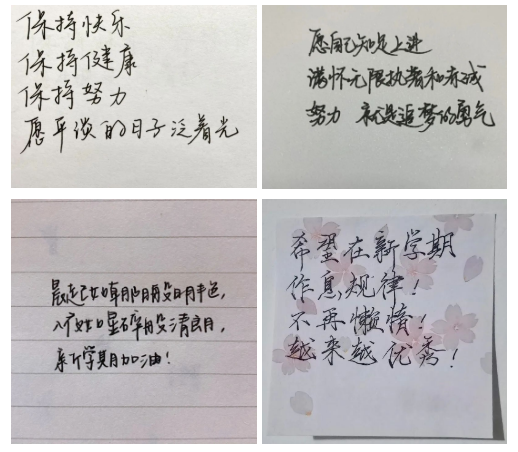 保持快乐
保持健康
保持努力
愿平淡的日子泛着光
愿自己知足上进
满怀无限执着和赤诚
努力 就是追梦的勇气
晨起如朝阳般明艳,
入夜如星碎般清朗,
新学期加油!
希望在新学期
作息规律!
不再懒惰!
越来越优秀!